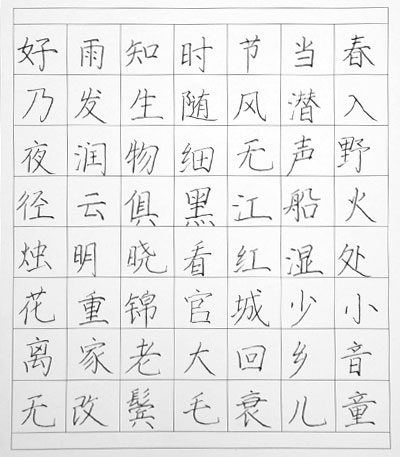 好雨知时节当春
乃发生随风潜入
夜润物细无声野
径云俱黑江船火
烛明晓看红湿处
花重锦官城少小
离家老大回乡音
无改鬓毛衰儿童